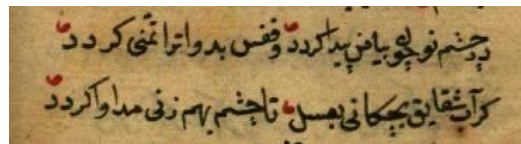 در چشم تو چون بیاض پیدا کردد بدوا ترا تمنی کردد
کر آب شقایق بچکانی بعسل تا چشم بهم زنی مداوا کردد